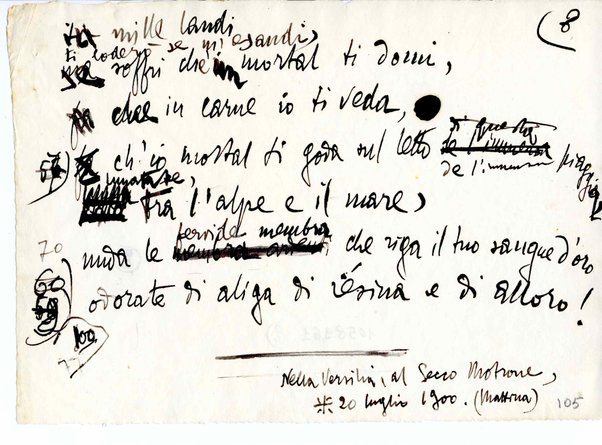 (8
mille laudi
ti loderò se m'esaudi,
soffri che un mortal ti domi,
che in carne io ti veda,
di questa
ch'io mortal ti goda sul letto de l'immensa piaggia
de l'immensa
tra l'alpe e il mare,
70
fervide membra
nuda le membra che riga il tuo sangue d'oro
odorate di aliga di rèsina e di alloro!
100
Nella Versilia, al Secco Motrone,
20 luglio 1900. (Mattina)
105